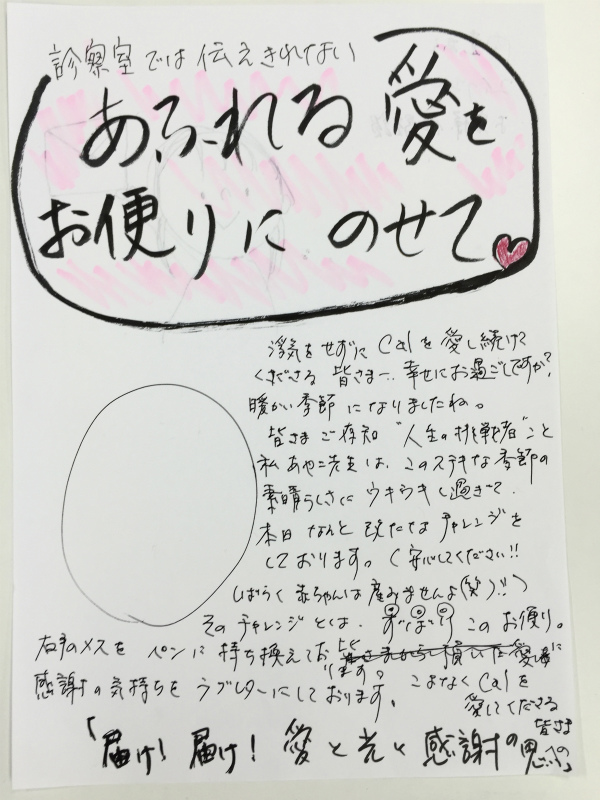 診察室では伝えきれない
あふれる愛を
お便りにのせて
浮気をせずにCalを愛し続けて
くださる皆さま… 幸せにお過ごしですか?
暖かい季節になりましたね。
皆さまご存知"人生の挑戦者"こと
私あやこ先生は、このステキな季節の
素晴らしさにウキウキし過ぎて、
本日なんと新たなチャレンジを
しております。(安心してください!!
しばらく赤ちゃんは産みませんよ(笑)!!)
そのチャレンジとは、ずばり このお便り。
右手のメスをペンに持ち換えて
感謝の気持ちをラブレターにしております。こよなくCalを
愛してくださる
皆さま
「届け! 届け! 愛と光と感謝の思いの」